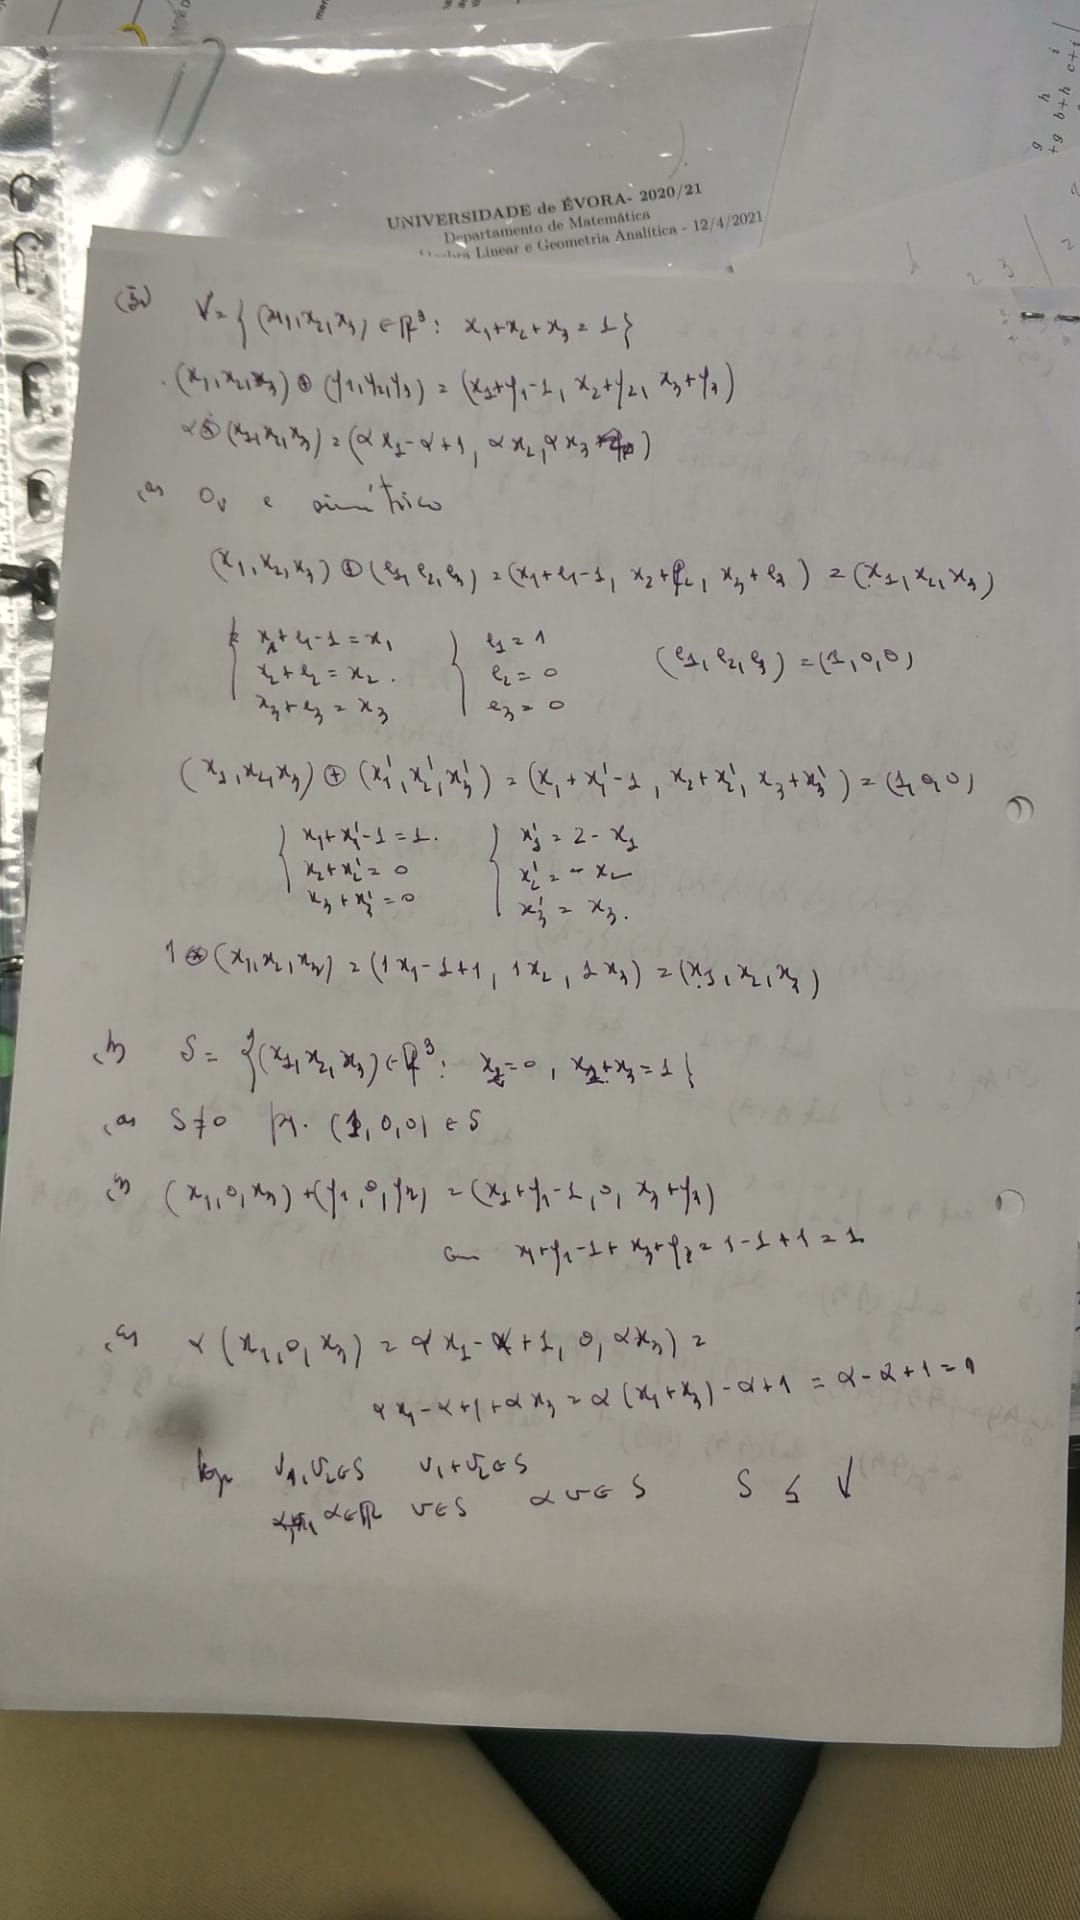 UNIVERSIDADE de ÉVORA- 2020/21
Departamento de Matemática
Linear e Geometria Analítica - 12/4/2021
V = { (x₁, x₂, x₃) ∈ ℝ³ : x₁ + x₂ + x₃ = 1 }
(x₁, x₂, x₃) ⊕ (y₁, y₂, y₃) = (x₁ + y₁ - 1, x₂ + y₂, x₃ + y₃)
α ⊗ (x₁, x₂, x₃) = (α x₁ - α + 1, α x₂, α x₃)
(a) 0ᵥ e simétrico
(x₁, x₂, x₃) ⊕ (e₁, e₂, e₃) = (x₁ + e₁ - 1, x₂ + e₂, x₃ + e₃) = (x₁, x₂, x₃)
{ x₁ + e₁ - 1 = x₁ { e₁ = 1
x₂ + e₂ = x₂ e₂ = 0 (e₁, e₂, e₃) = (1, 0, 0)
x₃ + e₃ = x₃ e₃ = 0
(x₁, x₂, x₃) ⊕ (x₁', x₂', x₃') = (x₁ + x₁' - 1, x₂ + x₂', x₃ + x₃') = (1, 0, 0)
{ x₁ + x₁' - 1 = 1. { x₁' = 2 - x₁
x₂ + x₂' = 0 x₂' = - x₂
x₃ + x₃' = 0 x₃' = x₃.
1 ⊗ (x₁, x₂, x₃) = (1 x₁ - 1 + 1, 1 x₂, 1 x₃) = (x₁, x₂, x₃)
(b) S = { (x₁, x₂, x₃) ∈ ℝ³ : x₂ = 0, x₁ + x₃ = 1 }
(a) S ≠ 0 pq. (1, 0, 0) ∈ S
(b) (x₁, 0, x₃) + (y₁, 0, y₃) = (x₁ + y₁ - 1, 0, x₃ + y₃)
x₁ + y₁ - 1 + x₃ + y₃ = 1 - 1 + 1 = 1
(c) α (x₁, 0, x₃) = α x₁ - α + 1, 0, α x₃) =
α x₁ - α + 1 + α x₃ = α (x₁ + x₃) - α + 1 = α - α + 1 = 1
logo v₁, v₂ ∈ S v₁ + v₂ ∈ S
α ∈ ℝ v ∈ S α v ∈ S S ≤ V